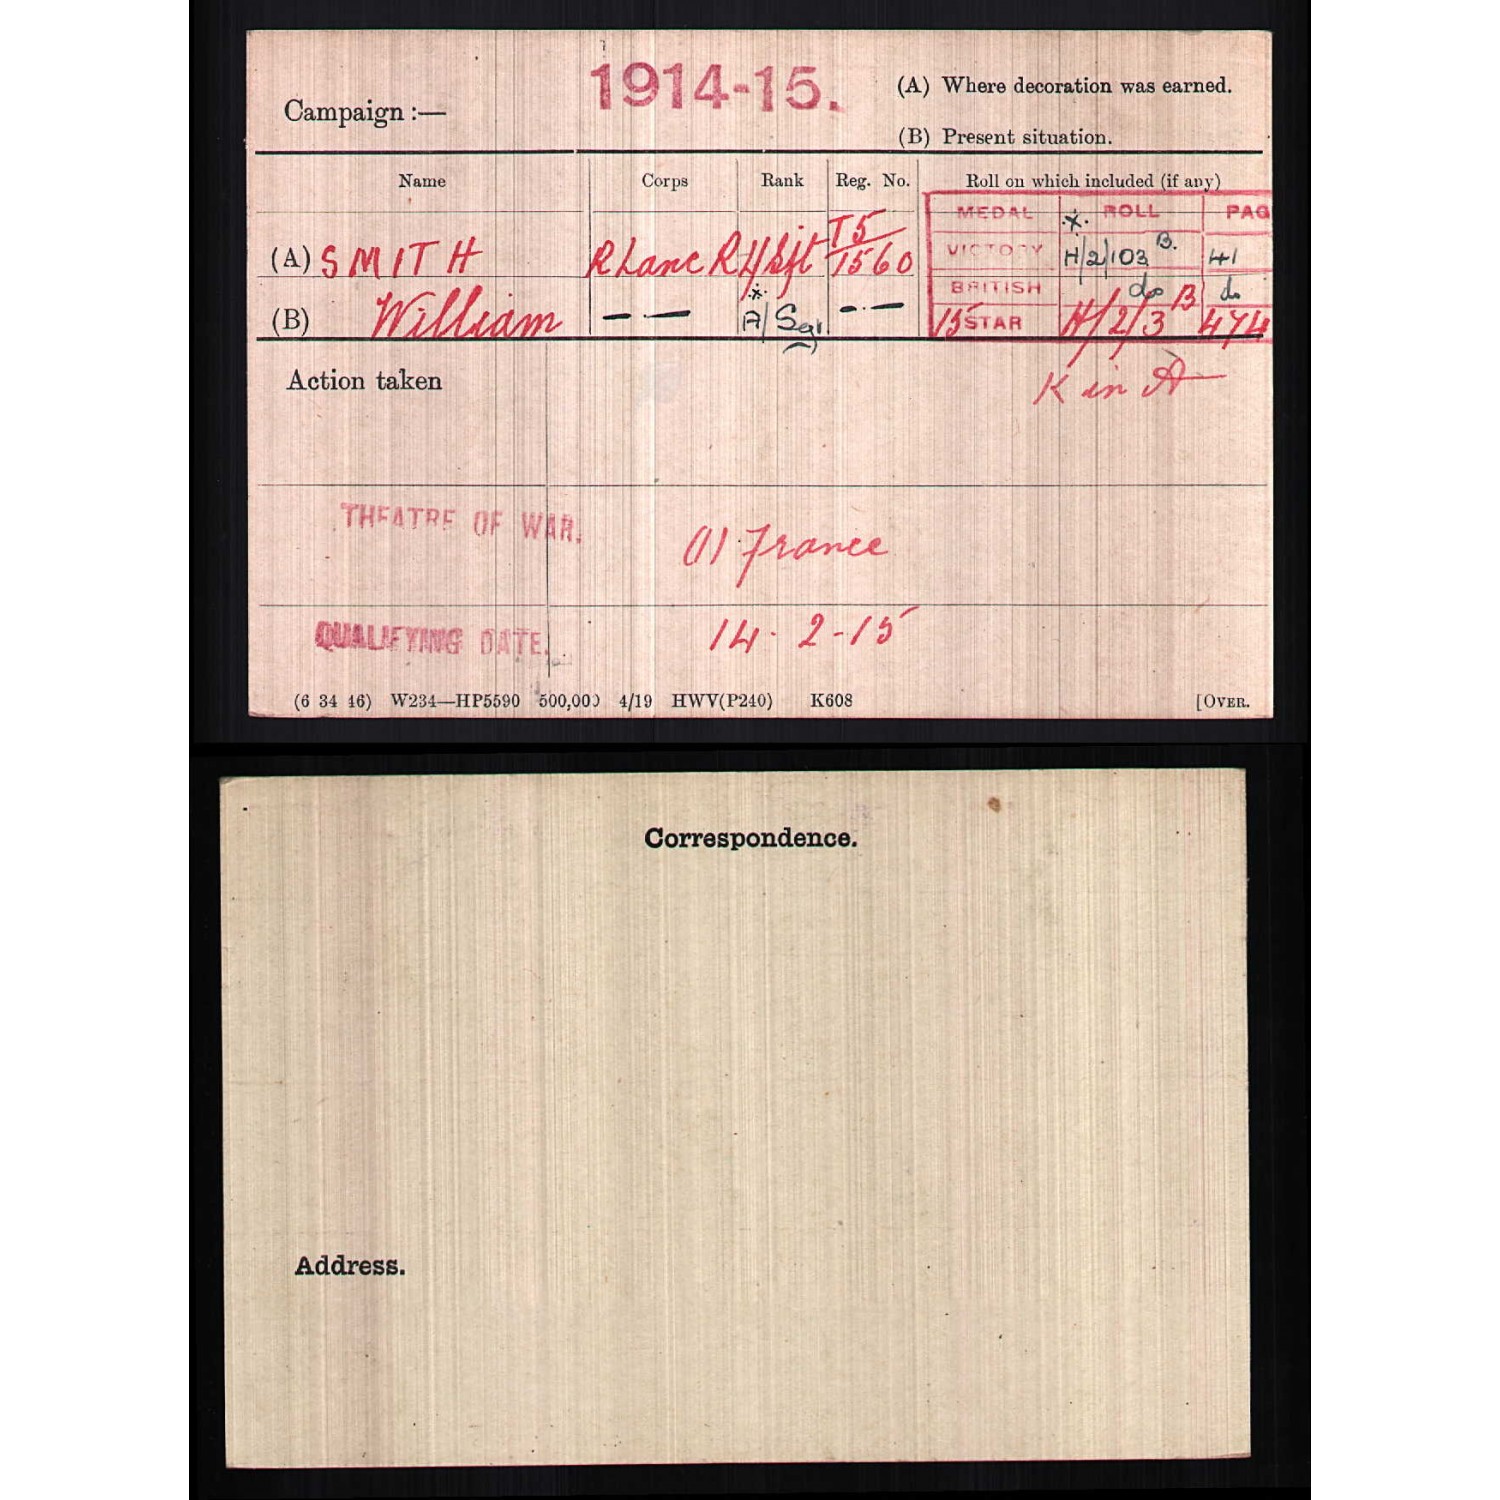 1914-15.
Campaign :—
(A) Where decoration was earned.
(B) Present situation.
Name Corps Rank Reg. No. Roll on which included (if any)
MEDAL ROLL PAG
(A) SMITH R Lanc R T5/1560 VICTORY H/2/103 B. 41
BRITISH do do
(B) William — — A/Sgt — — 15 STAR H/2/3 B 474
K in A
Action taken
THEATRE OF WAR. (1) France
QUALIFYING DATE. 14-2-15
(6 34 46) W234—HP5590 500,000 4/19 HWV(P240) K608 [OVER.
Correspondence.
Address.